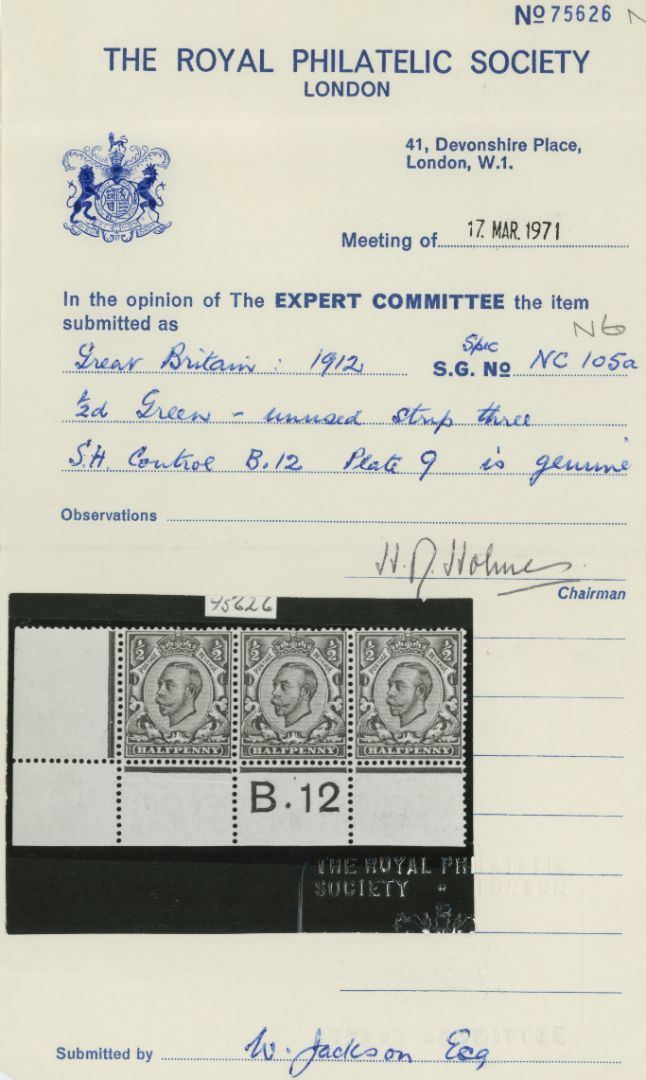 No 75626 N
THE ROYAL PHILATELIC SOCIETY
LONDON
41, Devonshire Place,
London, W.1.
Meeting of 17. MAR. 1971
In the opinion of The EXPERT COMMITTEE the item
submitted as N6
Great Britain : 1912 Spec S.G. No NC 105a
½d Green - unused strip three
S.H. Control B.12 Plate 9 is genuine
Observations
H. R. Holmes
Chairman
75626
½ ½ ½ ½ ½ ½
POSTAGE REVENUE POSTAGE REVENUE POSTAGE REVENUE
HALFPENNY HALFPENNY HALFPENNY
B.12
THE ROYAL PHILATELIC
SOCIETY LONDON
Submitted by W. Jackson Esq